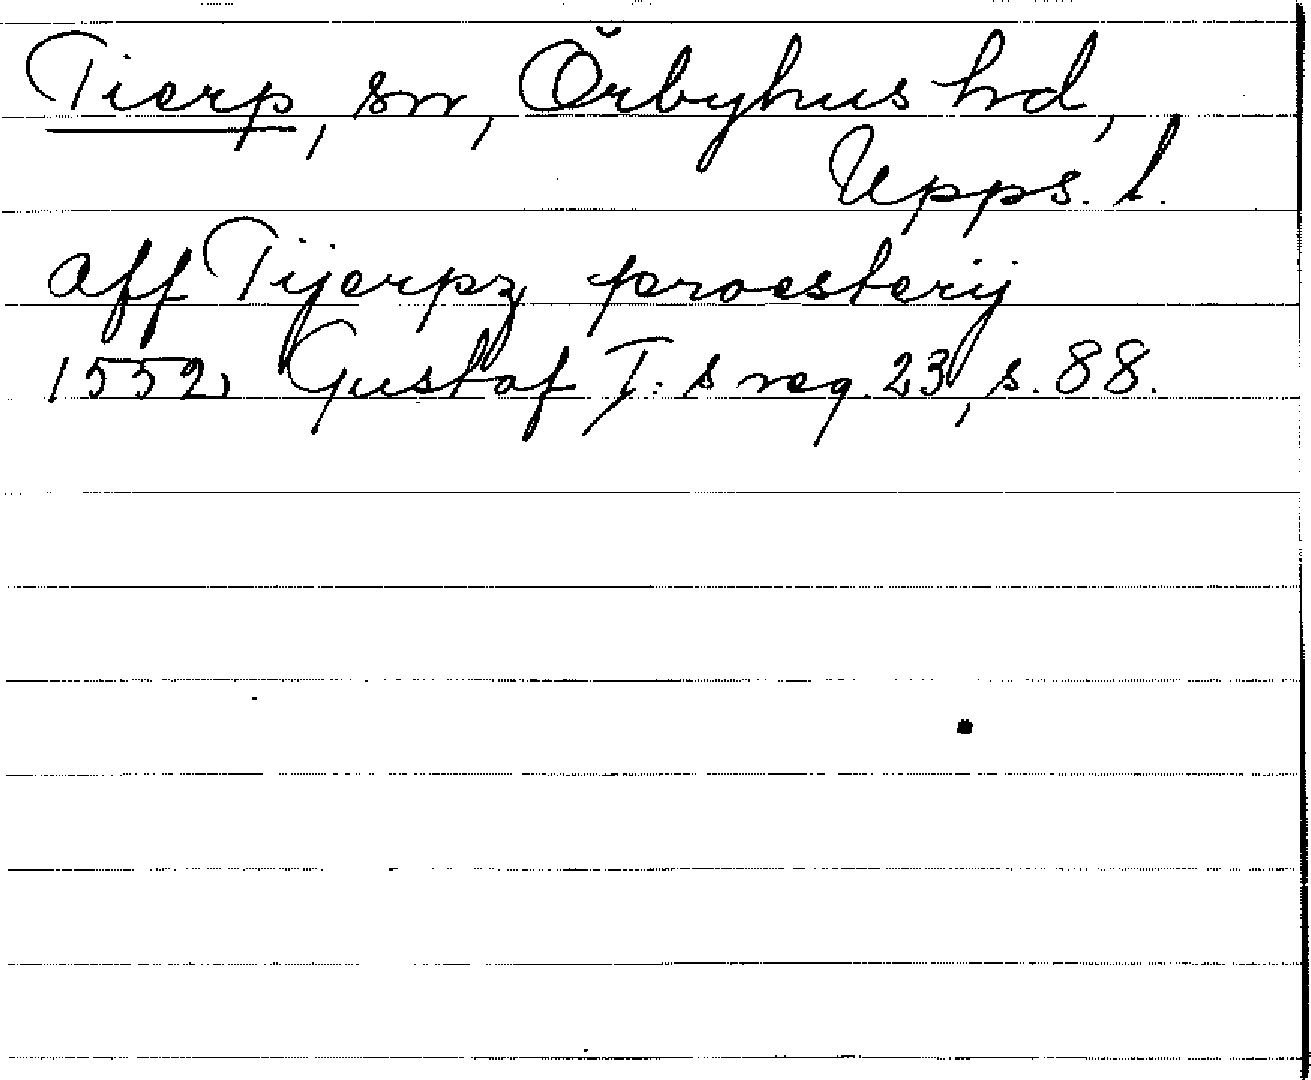 Tierp, sn, Örbyhus hd,
Upps. l.
aff Tijerpz proesterij
1552, Gustaf I:s reg. 23, s. 88.